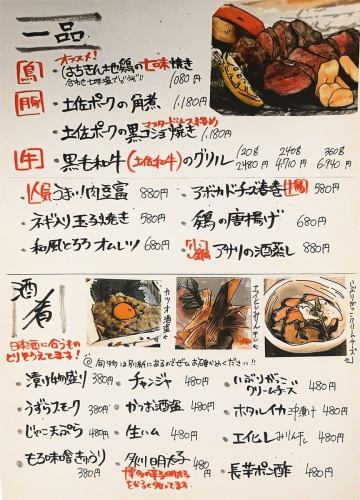 一品
オススメ!
鳥 はちきん地鶏の七味焼き
1080円
豚 土佐ポークの角煮 1,180円
マスタードソース
土佐ポークの黒コショウ焼き 1,180円
牛 黒毛和牛(土佐和牛)のグリル
120g 240g 360g
2480円 4710円 6,940円
人気 うまい!肉豆富 880円
ネギ入り玉子焼き 580円
和風とろろオムレツ 680円
アボカドチーズ春巻 580円
鶏の唐揚げ 680円
アサリの酒蒸し 880円
酒肴
日本酒に合うもの
とりそろえてます!
カツオ酒盗
エイヒレみりんぼし
いぶりがっこクリームチーズ
漬け物盛り 380円
うずらスモーク 380円
じゃこ天ぷら 480円
もろ味噌きゅうり
380円
チャンジャ 480円
かつお酒盗 480円
生ハム 480円
明太子 480円
いぶりがっこ
クリームチーズ 480円
ホタルイカ沖漬け 480円
エイヒレみりん干し 480円
長芋ポン酢 480円